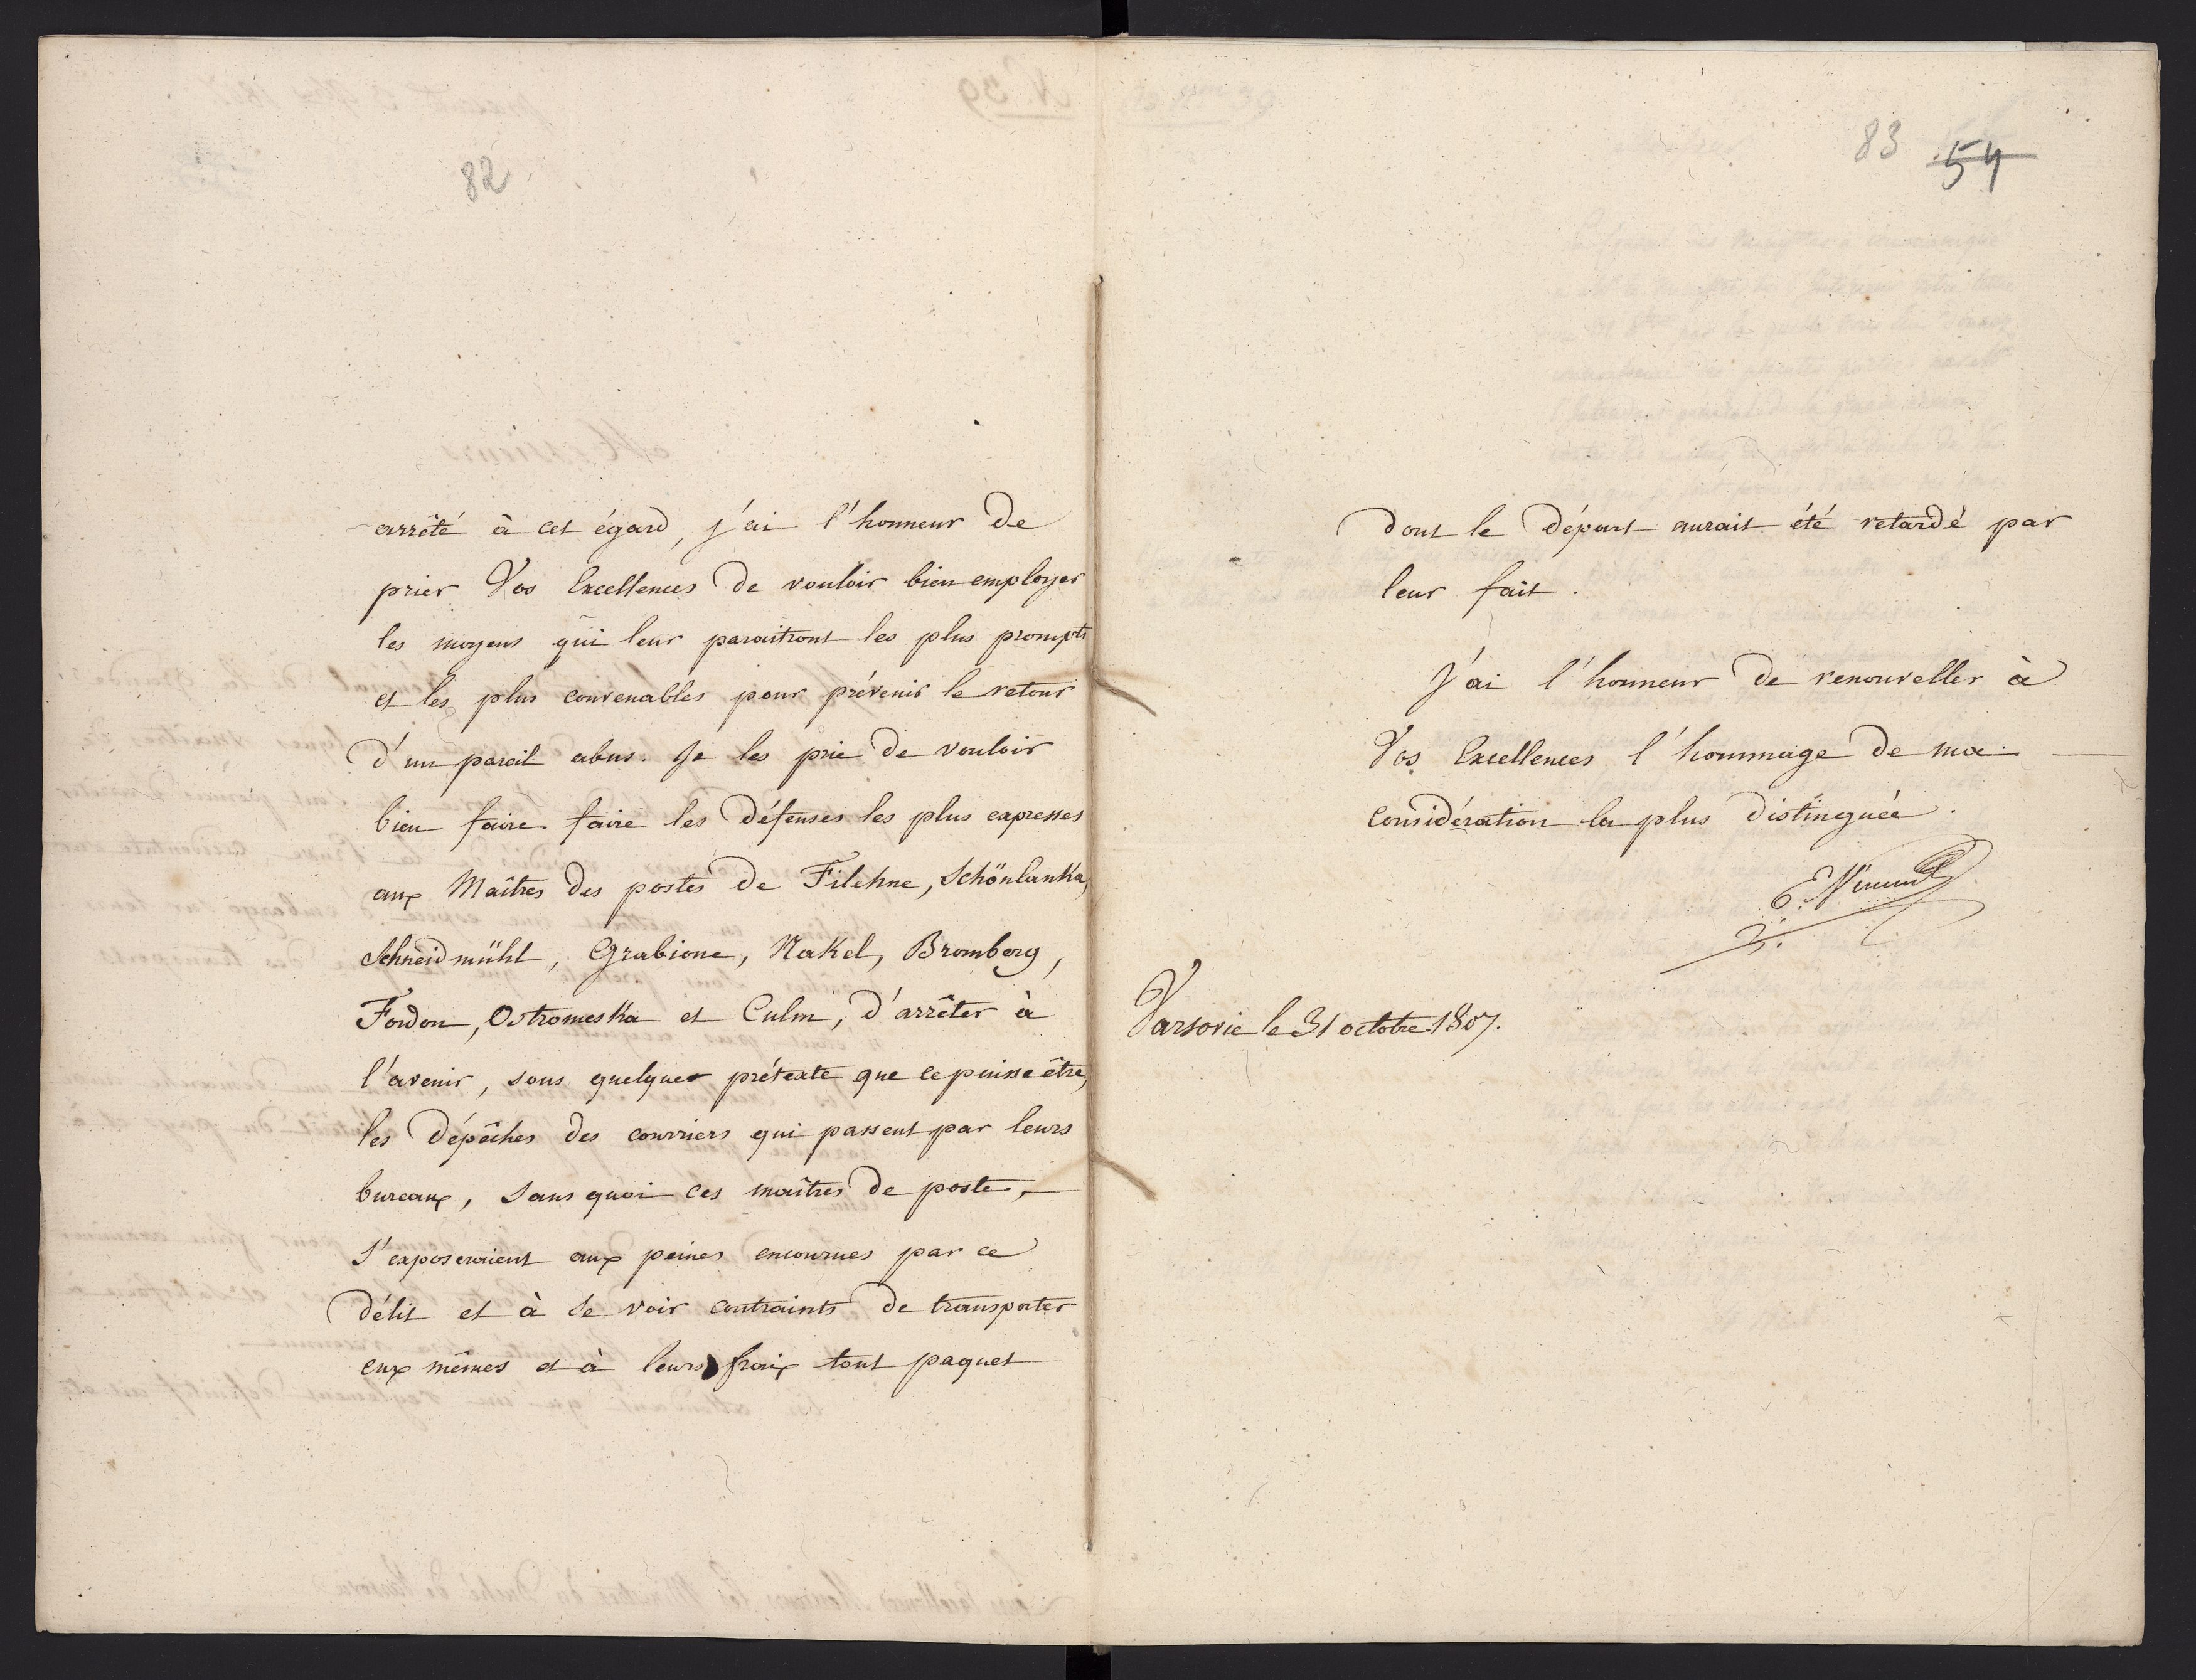 82
arrêté à cet égard, j'ai l'honneur de
prier Vos Excellences de vouloir bien employer
les moyens qui leur paraitront les plus prompts
et les plus convenables pour prévenir le retour
d'un pareil abus. Je les prie de vouloir
bien faire faire les défenses les plus expresses
aux Maîtres des postes de Filehne, Schönlanka,
Schneidmühl, Grabione, Nakel, Bromberg,
Fordon, Ostromeska et Culm, d'arrêter à
l'avenir, sous quelques prétexte que ce puisse être,
les dépêches des courriers qui passent par leurs
bureaux, sans quoi ces maîtres de poste,
s'exposeraient aux peines encourues par ce
délit et à se voir contraints de transporter
eux mêmes et à leurs fraix tout paquet
83 54
dont le départ aurait été retardé par
leur fait.
J'ai l'honneur de renouveller à
Vos Excellences l'hommage de ma
considération la plus distinguée.
Varsovie le 31 octobre 1807.